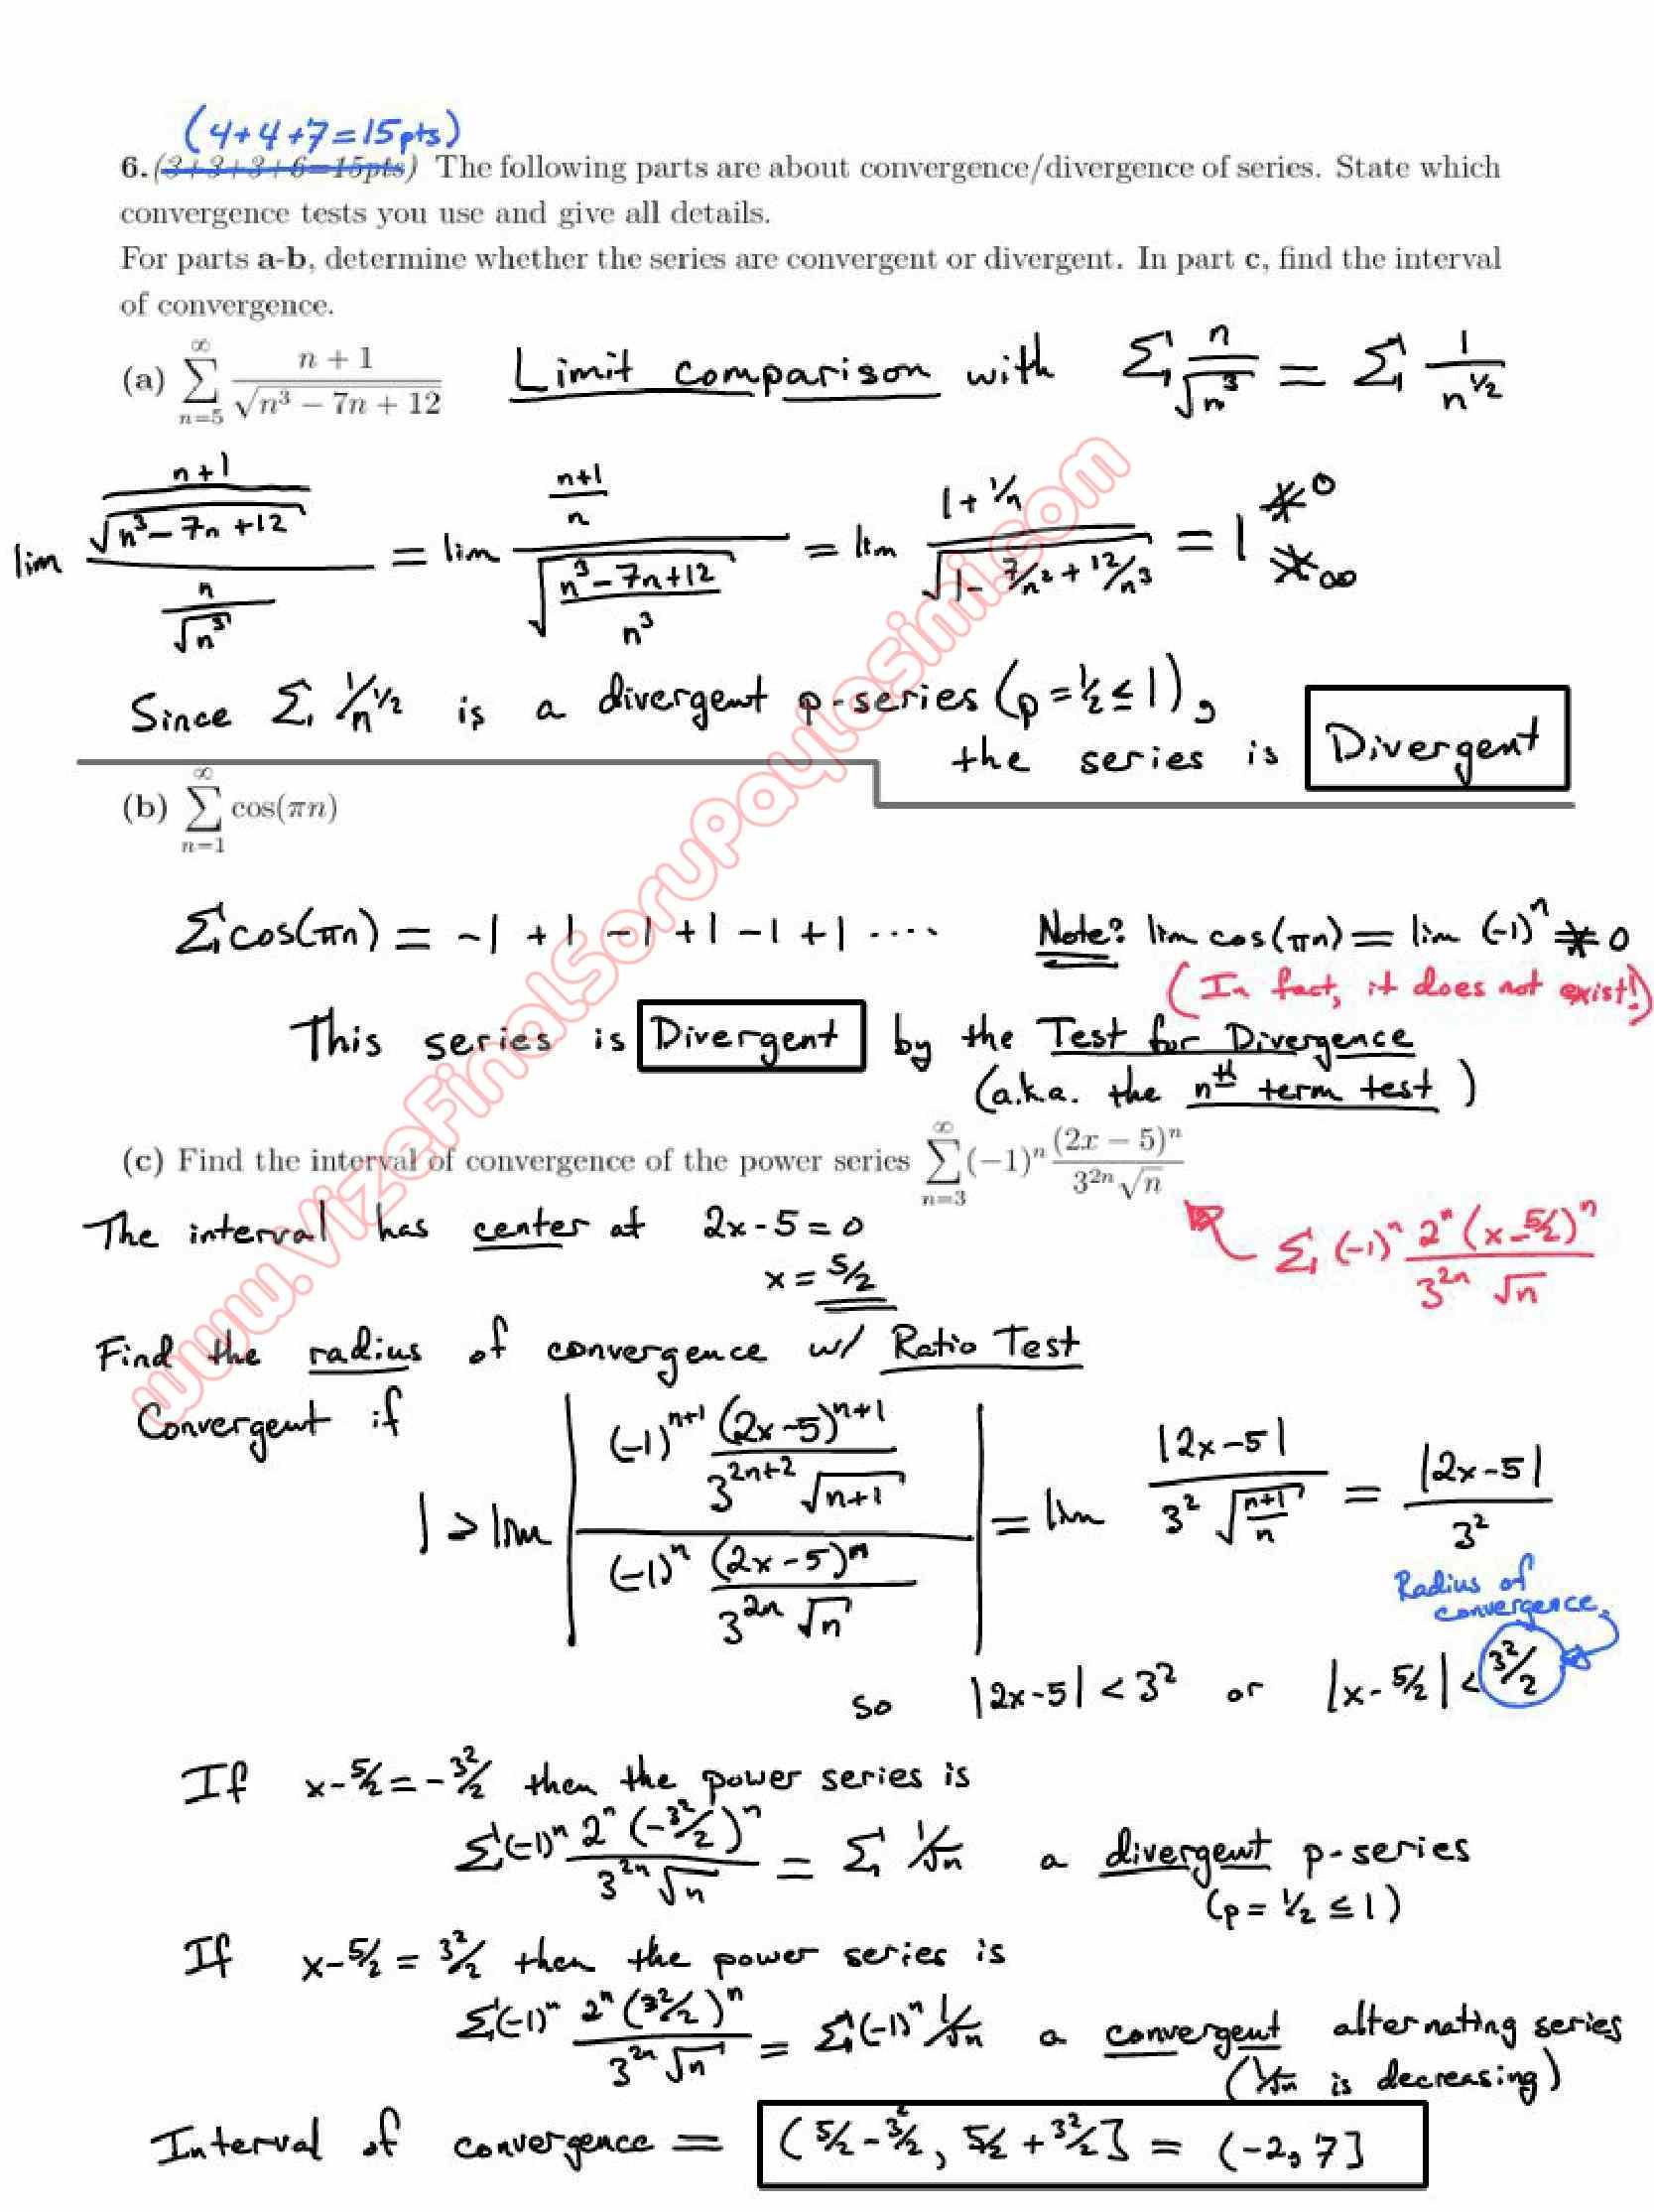 (4+4+7=15pts)
6. (3+3+3+6=15pts) The following parts are about convergence/divergence of series. State which
convergence tests you use and give all details.
For parts a-b, determine whether the series are convergent or divergent. In part c, find the interval
of convergence.
(a) ∑_{n=5}^{∞} (n + 1)/√(n³ − 7n + 12) Limit comparison with ∑ n/√n³ = ∑ 1/n^{1/2}
lim ((n+1)/√(n³−7n+12))/(n/√n³) = lim ((n+1)/n)/√((n³−7n+12)/n³) = lim (1+1/n)/√(1−7/n²+12/n³) = 1 ≠0 ≠∞
Since ∑ 1/n^{1/2} is a divergent p-series (p=1/2≤1),
the series is Divergent
(b) ∑_{n=1}^{∞} cos(πn)
∑cos(πn) = −1 +1 −1 +1 −1 +1 .... Note: lim cos(πn) = lim (−1)ⁿ ≠ 0
(In fact, it does not exist!)
This series is Divergent by the Test for Divergence
(a.k.a. the nth term test)
(c) Find the interval of convergence of the power series ∑_{n=3}^{∞} (−1)ⁿ (2x − 5)ⁿ/(3^{2n}√n)
The interval has center at 2x-5=0
x = 5/2
∑ (−1)ⁿ 2ⁿ(x−5/2)ⁿ/(3^{2n} √n)
Find the radius of convergence w/ Ratio Test
Convergent if
1 > lim |((−1)^{n+1} (2x−5)^{n+1}/(3^{2n+2} √(n+1)))/((−1)ⁿ (2x−5)ⁿ/(3^{2n} √n))| = lim |2x−5|/(3² √((n+1)/n)) = |2x−5|/3²
Radius of
convergence
so |2x−5| < 3² or |x−5/2| < 3²/2
If x−5/2 = −3²/2 then the power series is
∑(−1)ⁿ 2ⁿ(−3²/2)ⁿ/(3^{2n}√n) = ∑ 1/√n a divergent p-series
(p = 1/2 ≤ 1)
If x−5/2 = 3²/2 then the power series is
∑(−1)ⁿ 2ⁿ(3²/2)ⁿ/(3^{2n}√n) = ∑(−1)ⁿ 1/√n a convergent alternating series
(1/√n is decreasing)
Interval of convergence = (5/2−3²/2, 5/2+3²/2] = (−2,7]
www.VizeFinalSoruPaylasimi.com